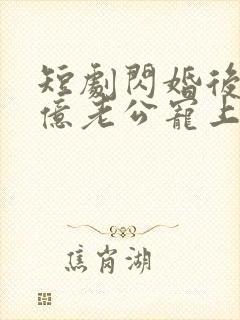 短劇閃婚後
億老公寵上
焦崗湖